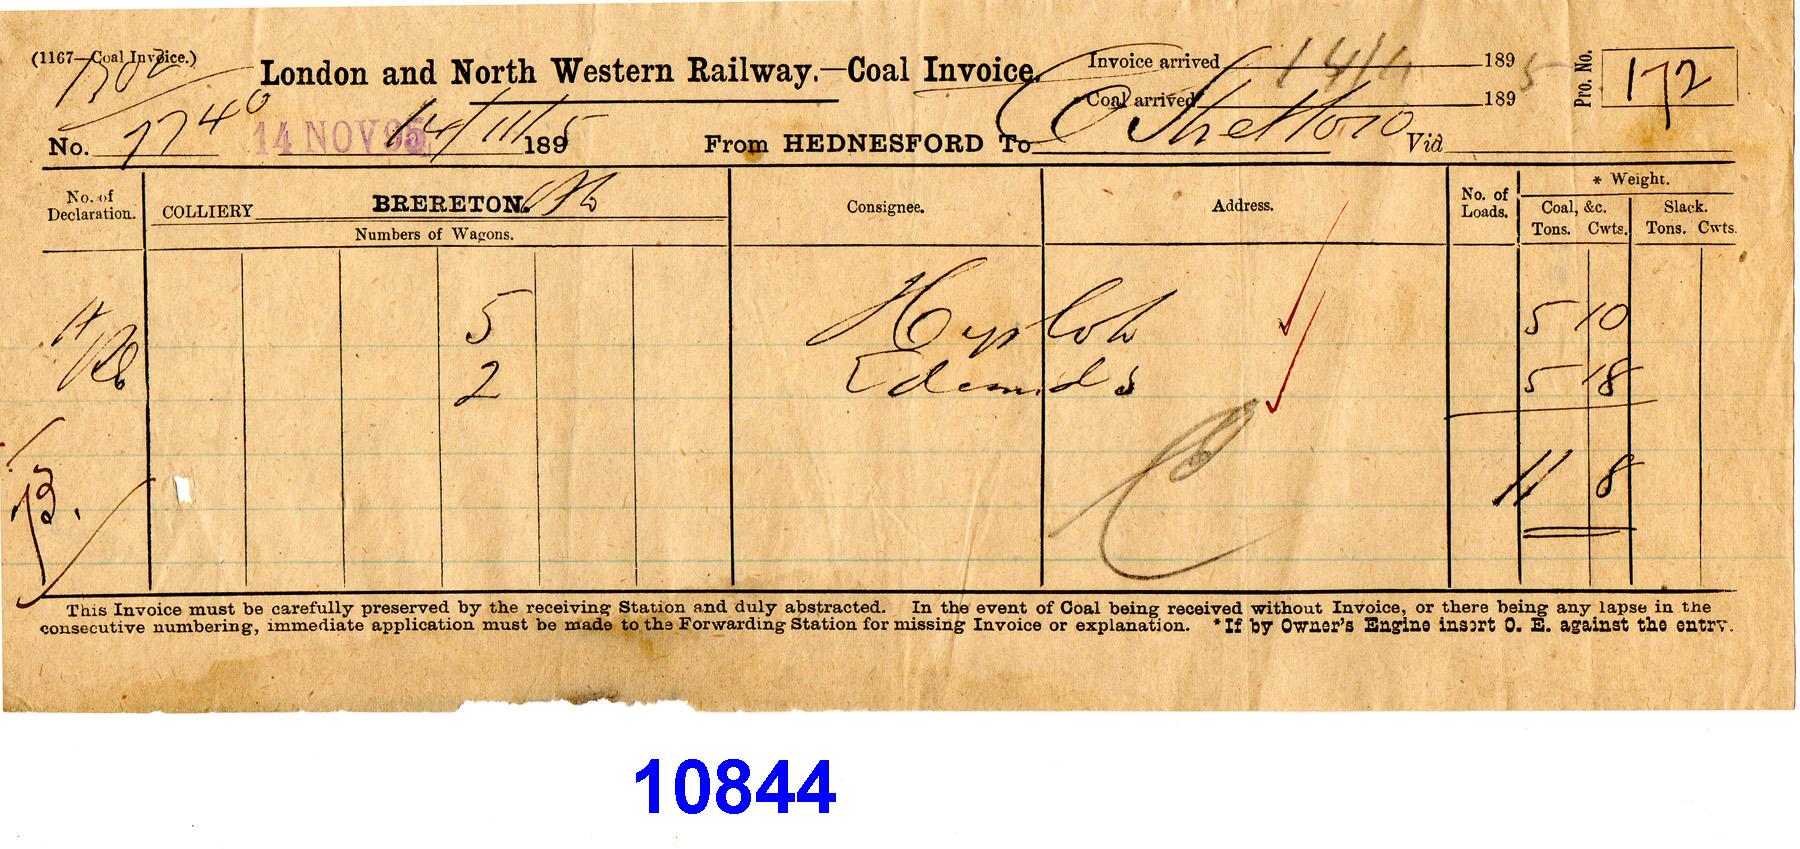 (1167—Coal Invoice.)
1702
London and North Western Railway.—Coal Invoice.
Invoice arrived 14/11 1895
Coal arrived 189
Pro. No. 172
No. 7740 14 NOV 95 14/11/5 189
From HEDNESFORD To Vid
No. of Declaration.
COLLIERY BRERETON.
Numbers of Wagons.
Consignee.
Address.
No. of Loads.
* Weight.
Coal, &c.
Tons. Cwts.
Slack.
Tons. Cwts.
5 5 10
2 Edmunds 5 18
11 8
This Invoice must be carefully preserved by the receiving Station and duly abstracted. In the event of Coal being received without Invoice, or there being any lapse in the
consecutive numbering, immediate application must be made to the Forwarding Station for missing Invoice or explanation. *If by Owner's Engine insert O. E. against the entry.
10844